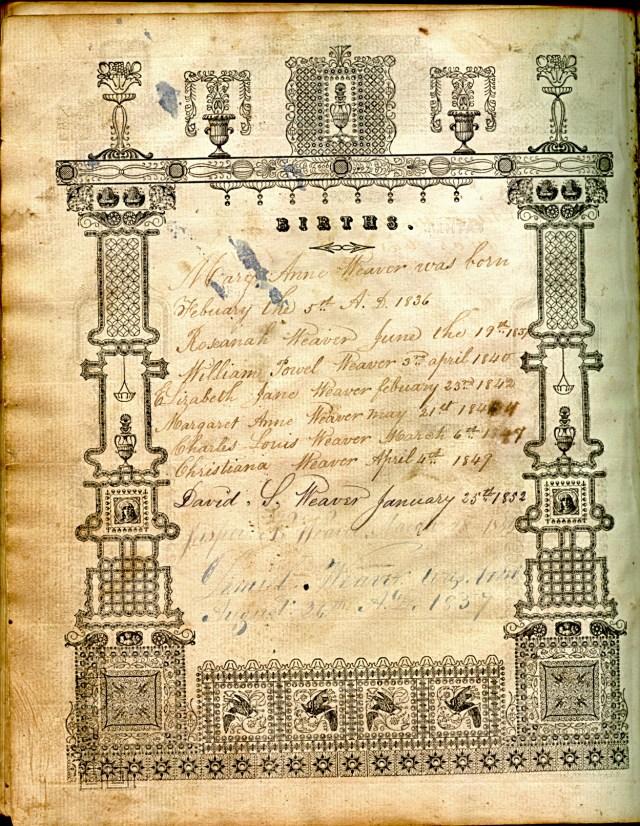 BIRTHS.
Mary Anne Weaver was born
Febuary the 5th A. D. 1836
Rosanah Weaver June the 19th
William Powel Weaver 3rd april 1840
Elizabeth Jane Weaver february 23rd 1842
Margaret Anne Weaver may 21st
Charles Louis Weaver March 6th 1847
Christiana Weaver April 4th 1849
David. S. Weaver January 25th 1852
Weaver
August 26th A.D. 1857